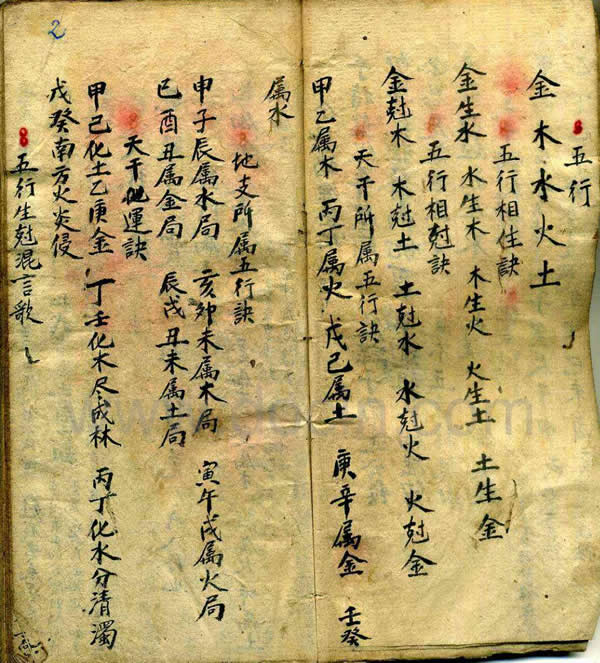 2
五行
金木水火土
五行相住訣
金生水 水生木 木生火 火生土 土生金
五行相尅訣
金尅木 木尅土 土尅水 水尅火 火尅金
天干所属五行訣
甲乙属木 丙丁属火 戊己属土 庚辛属金 壬癸
属水
地支所属五行訣
申子辰属水局 亥卯未属木局 寅午戌属火局
巳酉丑属金局 辰戌丑未属土局
天干化運訣
甲己化土乙庚金 丁壬化木尽成林 丙丁化水分清濁
戊癸南方火炎侵
五行生尅混言歌